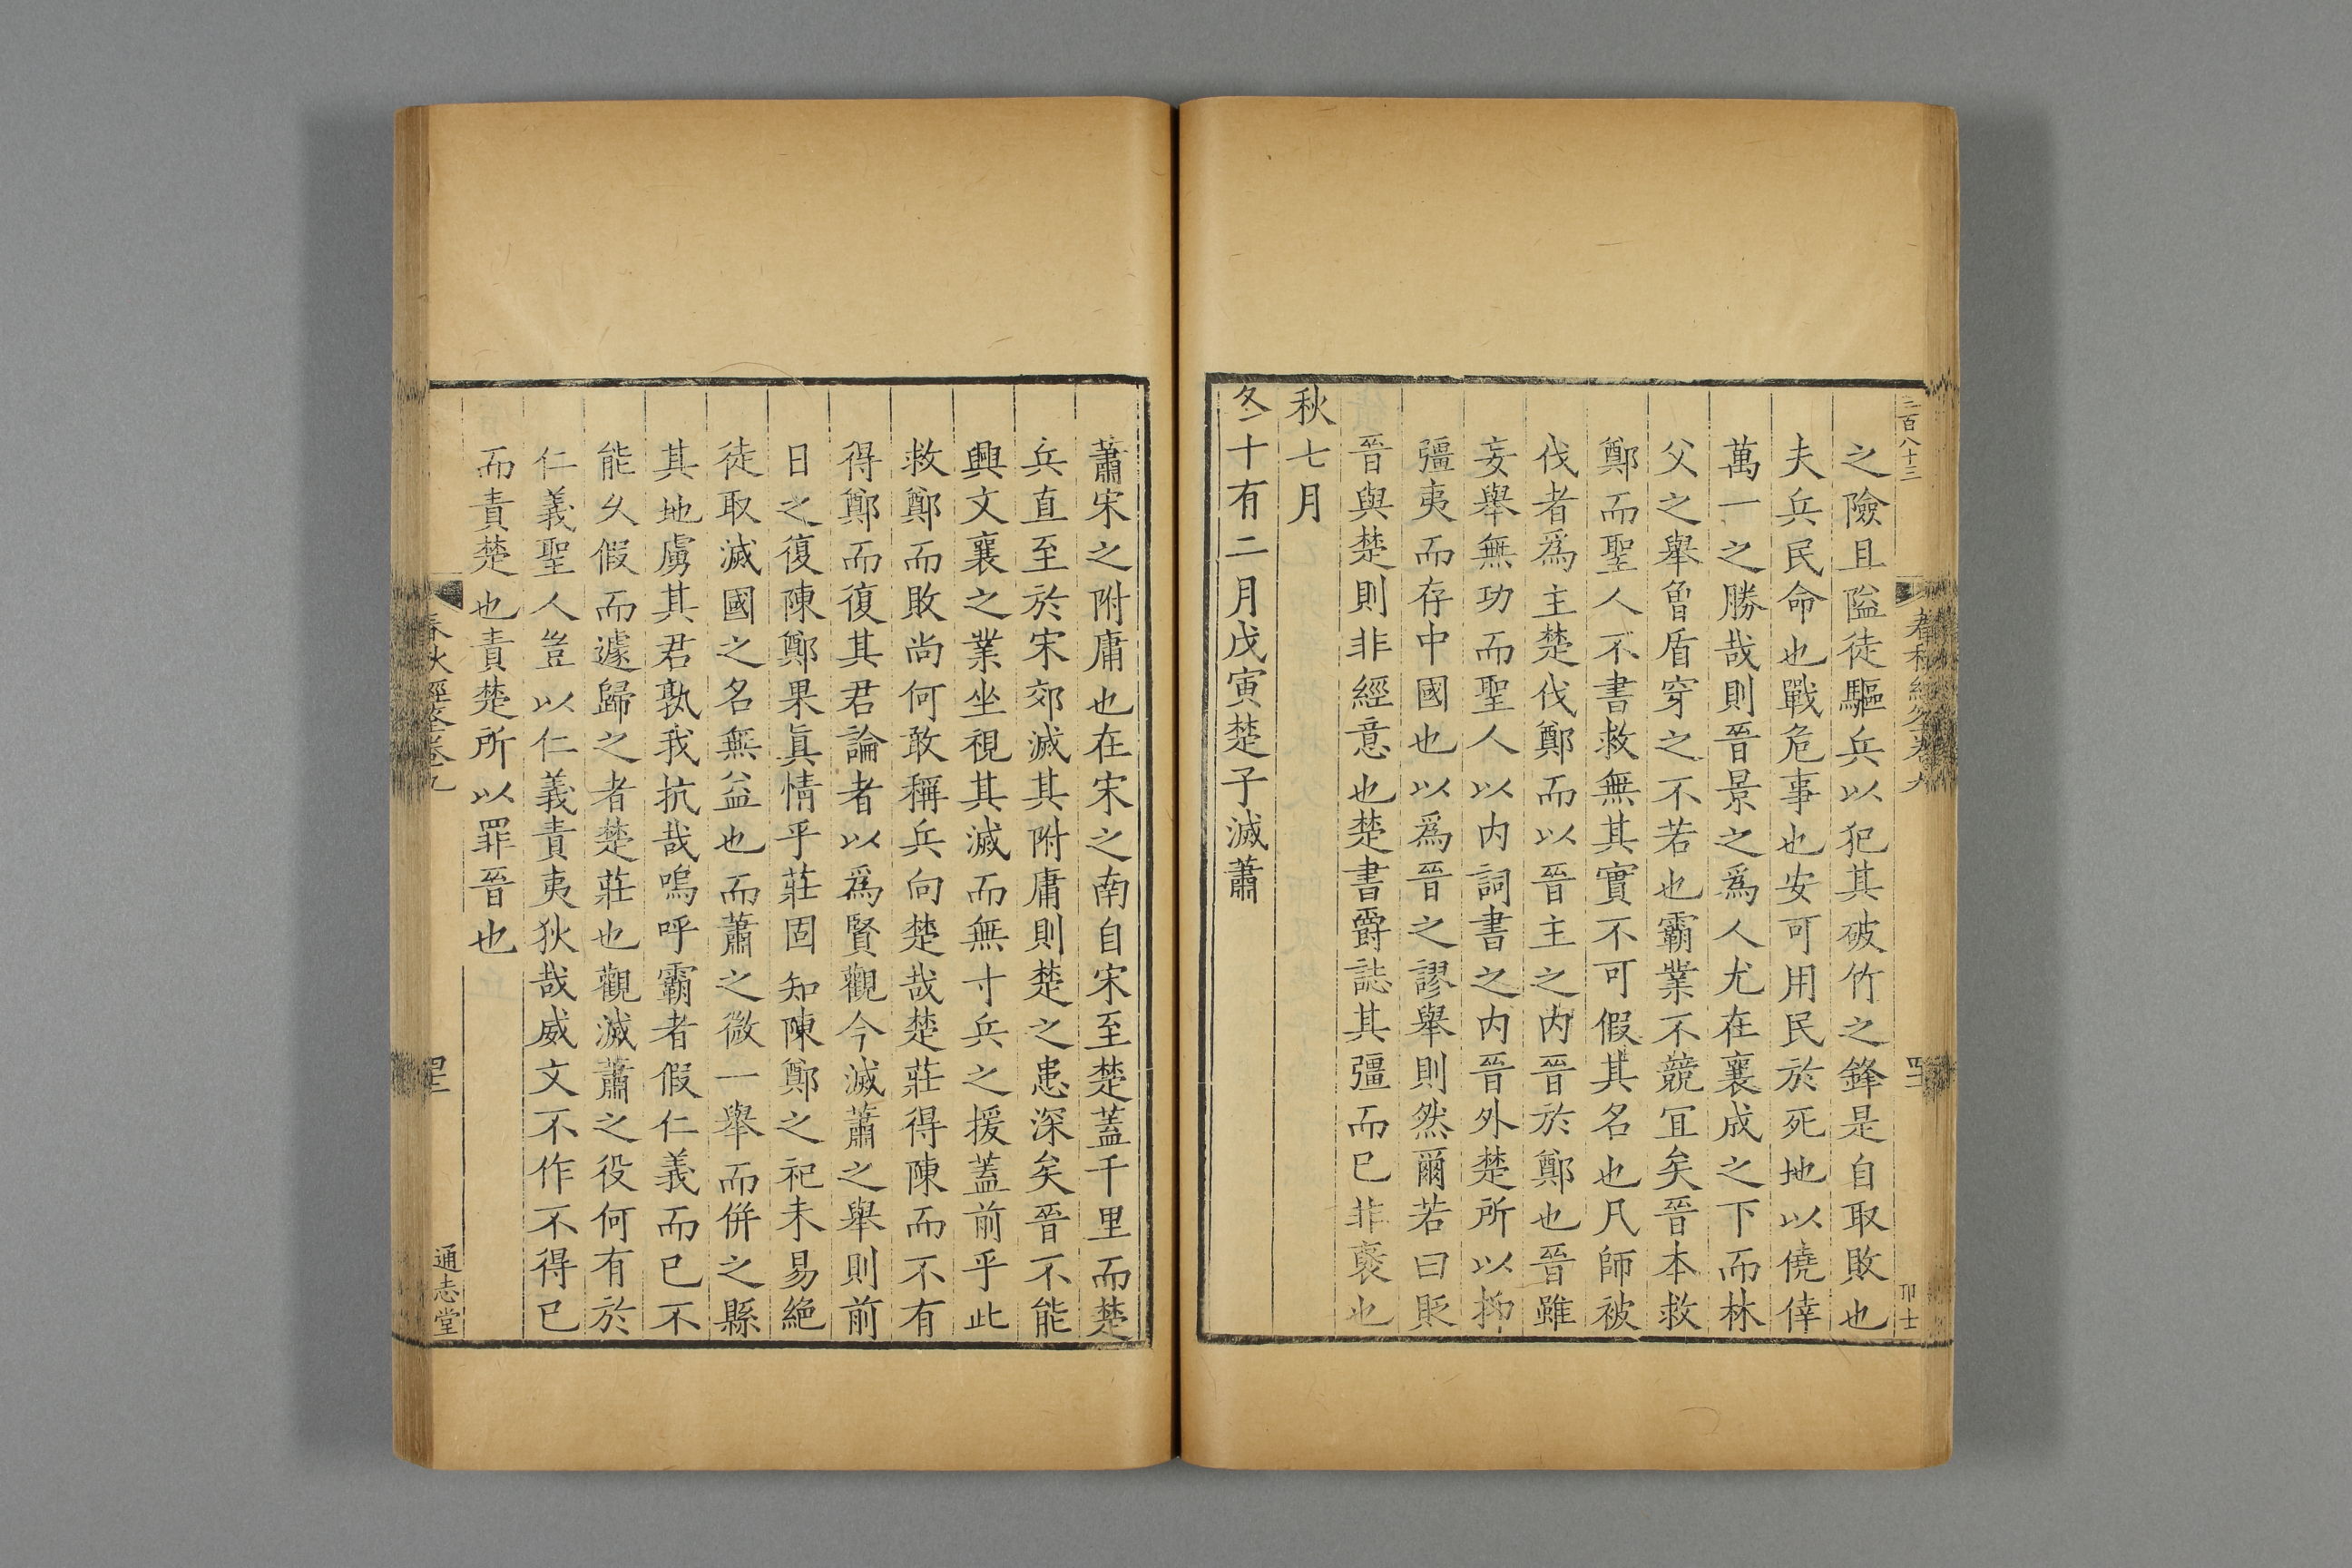 二百八十三
之險且隘徒驅兵以犯其破竹之鋒是自取敗也
夫兵民命也戰危事也安可用民於死地以僥倖
萬一之勝哉則晉景之爲人尤在襄成之下而林
父之舉魯盾穿之不若也霸業不競冝矣晉本救
鄭而聖人不書救無其實不可假其名也凡師被
伐者爲主楚伐鄭而以晉主之内晉於鄭也晉雖
妄舉無功而聖人以内詞書之内晉外楚所以抑
彊夷而存中國也以爲晉之謬舉則然爾若曰貶
晉與楚則非經意也楚書爵誌其彊而已非褒也
秋七月
冬十有二月戊寅楚子滅蕭
蕭宋之附庸也在宋之南自宋至楚蓋千里而楚
兵直至於宋郊滅其附庸則楚之患深矣晉不能
興文襄之業坐視其滅而無寸兵之援蓋前乎此
救鄭而敗尚何敢稱兵向楚哉楚莊得陳而不有
得鄭而復其君論者以爲賢觀今滅蕭之舉則前
日之復陳鄭果眞情乎莊固知陳鄭之祀未易絶
徒取滅國之名無益也而蕭之微一舉而併之縣
其地虜其君孰我抗哉嗚呼霸者假仁義而已不
能久假而遽歸之者楚莊也觀滅蕭之役何有於
仁義聖人豈以仁義責夷狄哉威文不作不得已
而責楚也責楚所以罪晉也
春秋經筌卷九
通志堂